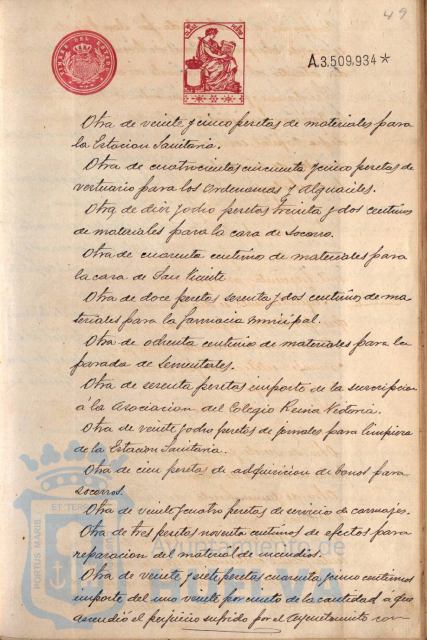 49
TIMBRE DEL ESTADO
A.3.509,934*
Otra de veinte y cinco pesetas de materiales para
la Estacion Sanitaria.
Otra de cuatrocientas cincuenta y cinco pesetas de
vestuario para los Ordenanzas y Alguaciles.
Otra de diez y ocho pesetas treinta y dos centimos
de materiales para la casa de socorro.
Otra de cuarenta centimos de materiales para
la casa de San Vicente
Otra de doce pesetas sesenta y dos centimos de ma-
teriales para la farmacia municipal.
Otra de ochenta centimos de materiales para la
parada de Sementales.
Otra de sesenta pesetas importe de la suscripcion
á la Asociacion del Colegio Reina Victoria.
Otra de veinte y ocho pesetas de jornales para limpieza
de la Estacion Sanitaria.
Otra de cien pesetas de adquisicion de bonos para
socorros.
Otra de veinte y cuatro pesetas de servicio de carruajes.
Otra de tres pesetas noventa centimos de efectos para
reparacion del material de incendios.
Otra de veinte y siete pesetas cuarenta y cinco centimos
importe del uno veinte por ciento de la cantidad á que
ascendió el perjuicio sufrido por el Ayuntamiento con
PORTUS MARIS ET TERR